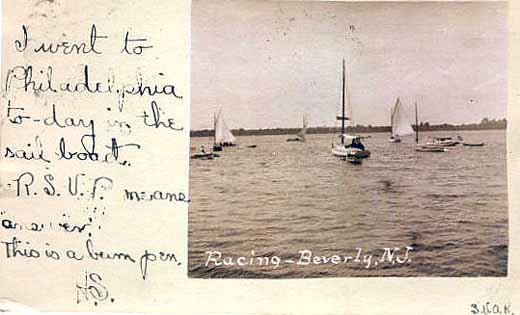 I went to
Philadelphia
to-day in the
sail boat.
R.S.V.P. means
answer.
This is a bum pen.
Racing - Beverly, N.J.